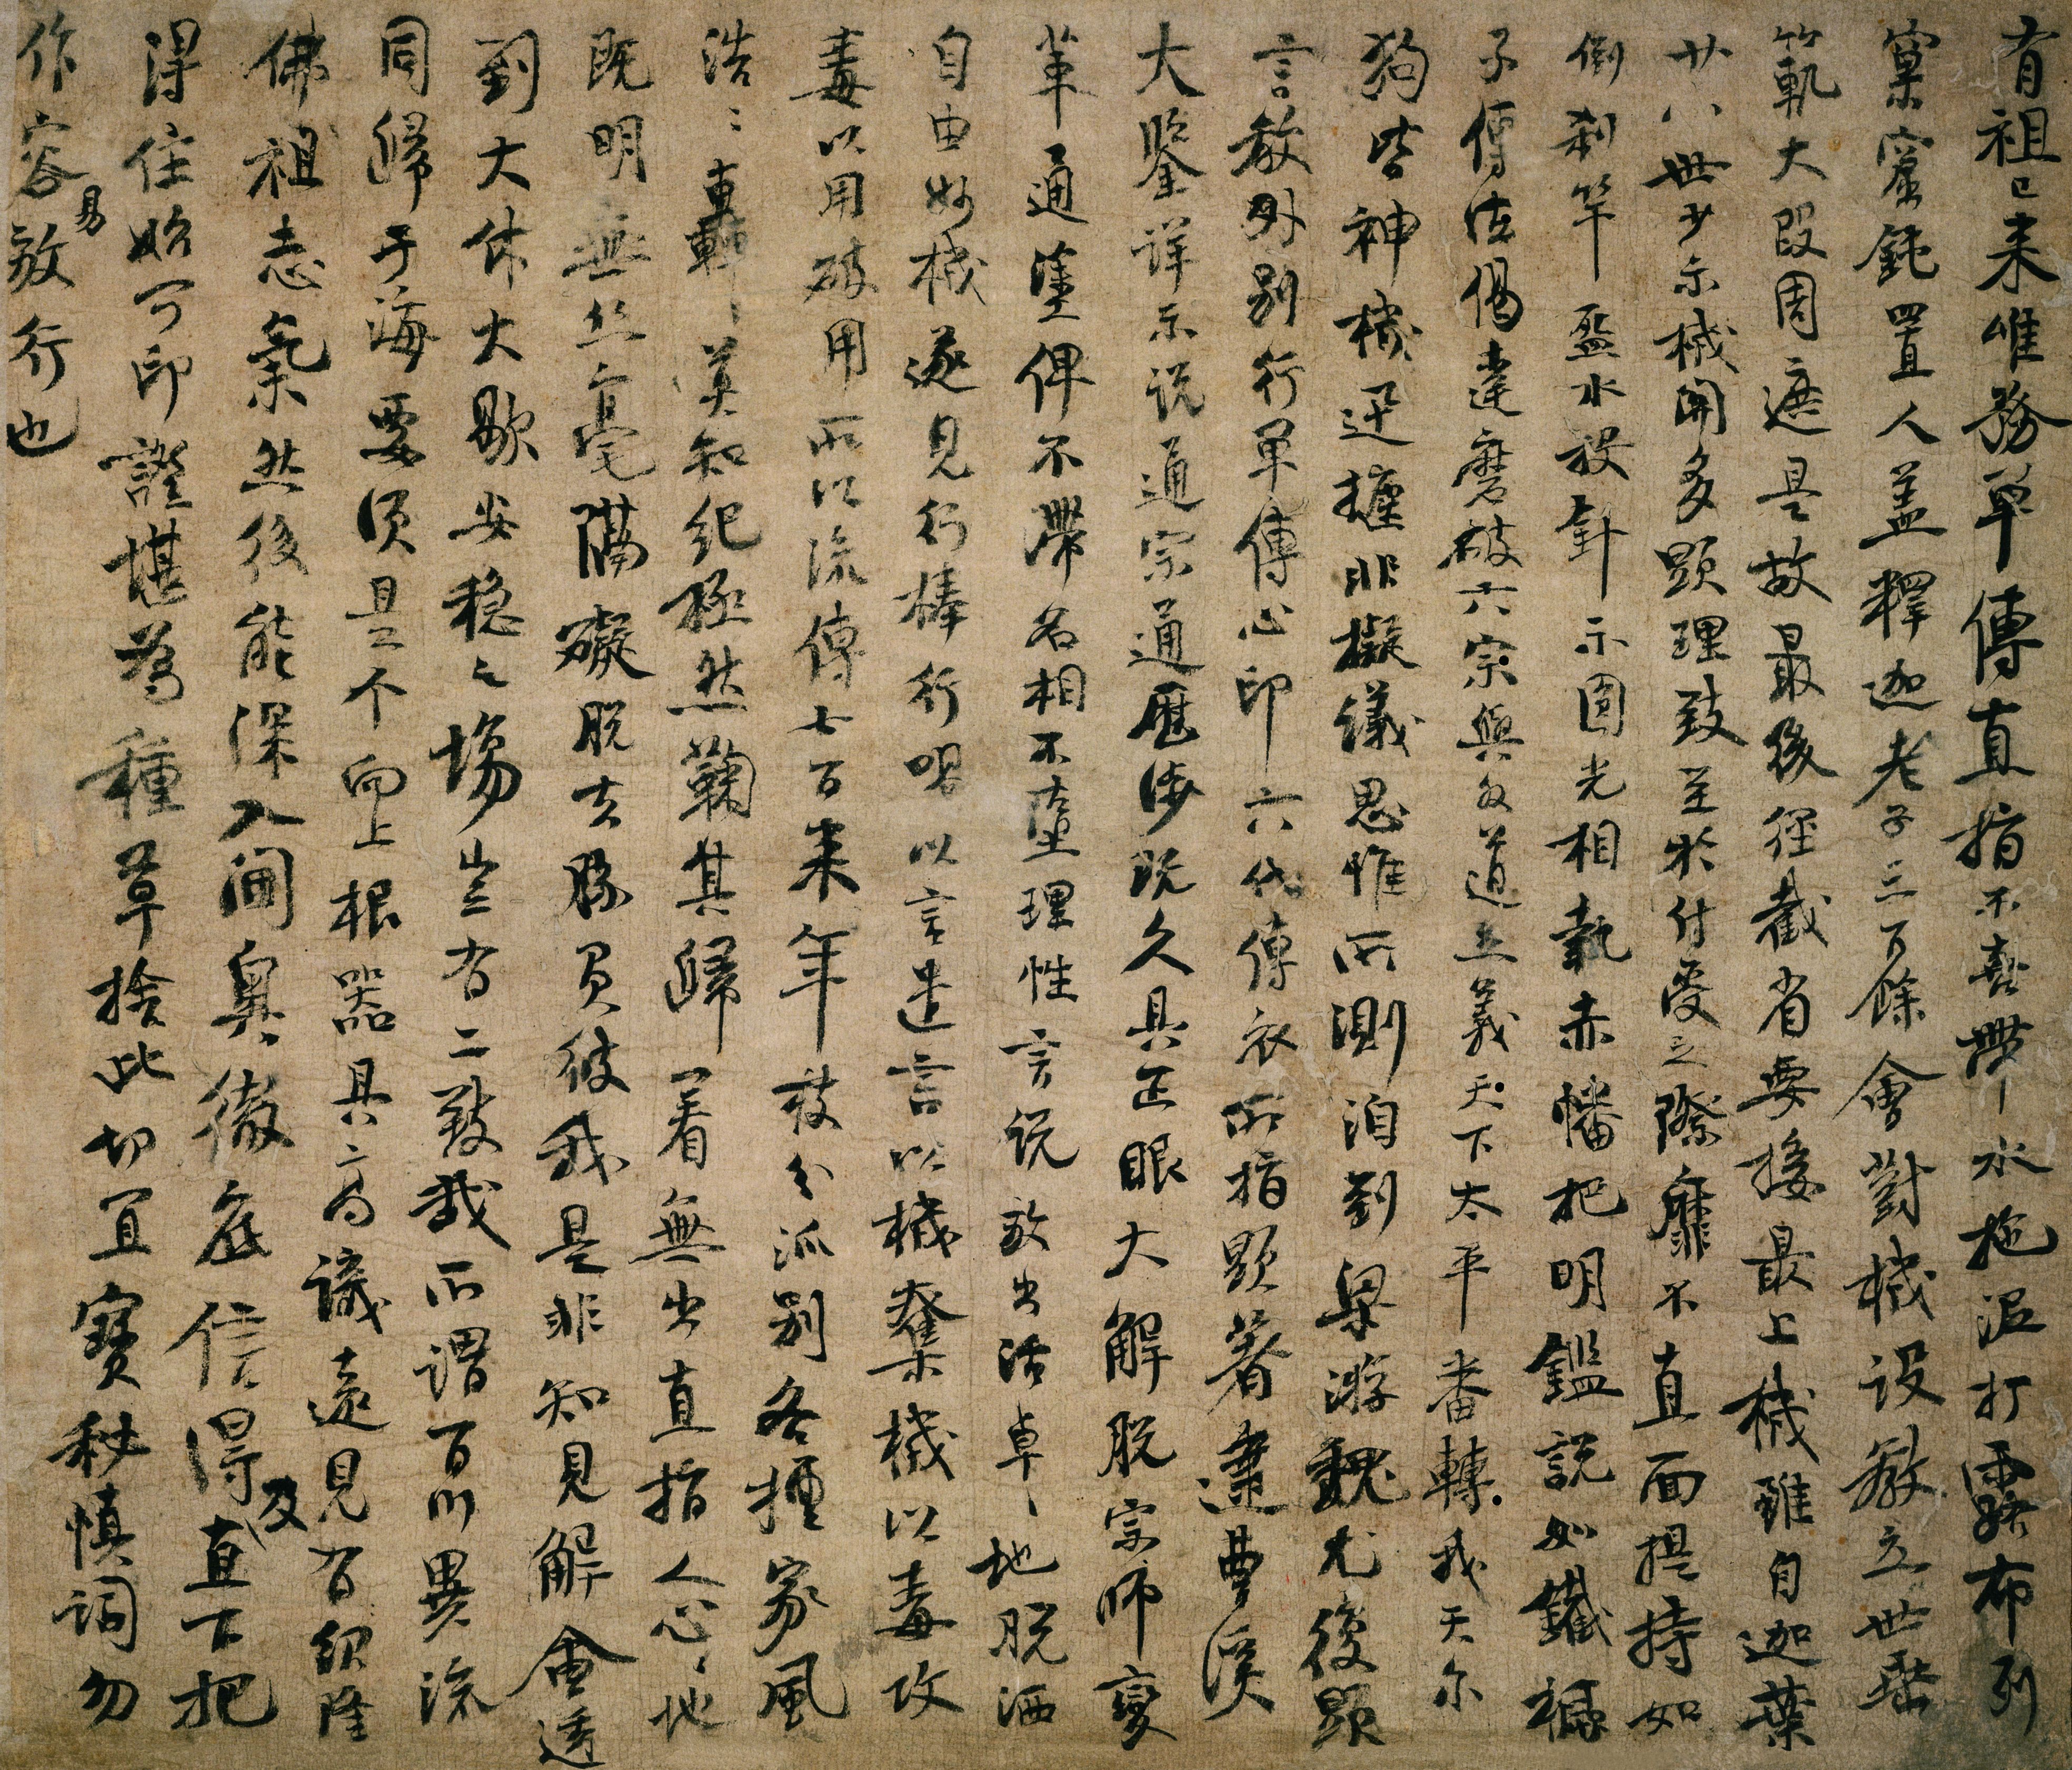 有祖已来唯務單傳直指不喜帶水拖泥打露布列
窠窟鈍置人盖釋迦老子三百餘會對機設教立世垂
範大段周遮是故最後徑截省要接最上機雖自迦葉
廿八世少示機開多顕理致至於付受之際靡不直面提持如
倒刹竿盌水投針示圓光相執赤幡把明鑑説如鐵橛
子傳法偈達磨破六宗與外道立義天下太平番轉我天尔
狗皆神機迅捷非擬議思惟所測洎到梁游魏尤復顕
言教外別行單傳心印六代傳衣所指顕著逮曹溪
大鑒詳示説通宗通歷涉既久具正眼大解脱宗師變
革通塗俾不滯名相不墮理性言説放出活卓〻地脱洒
自由妙機遂見行棒行喝以言遣言以機奪機以毒攻
毒以用破用所以流傳七百来年枝分派別各擅家風
浩〻轟〻莫知紀極然鞠其歸著無出直指人心〻地
既明無丝毫隔礙脱去勝負彼我是非知見解會透
到大休大歇安穏之場豈有二致哉所謂百川異流
同歸于海要須是个向上根器具高識遠見有紹隆
佛祖志氣然後能深入閫奧徹底信得及直下把
得住始可印證堪為種草捨此切宜寶秘慎詞勿
作容易放行也